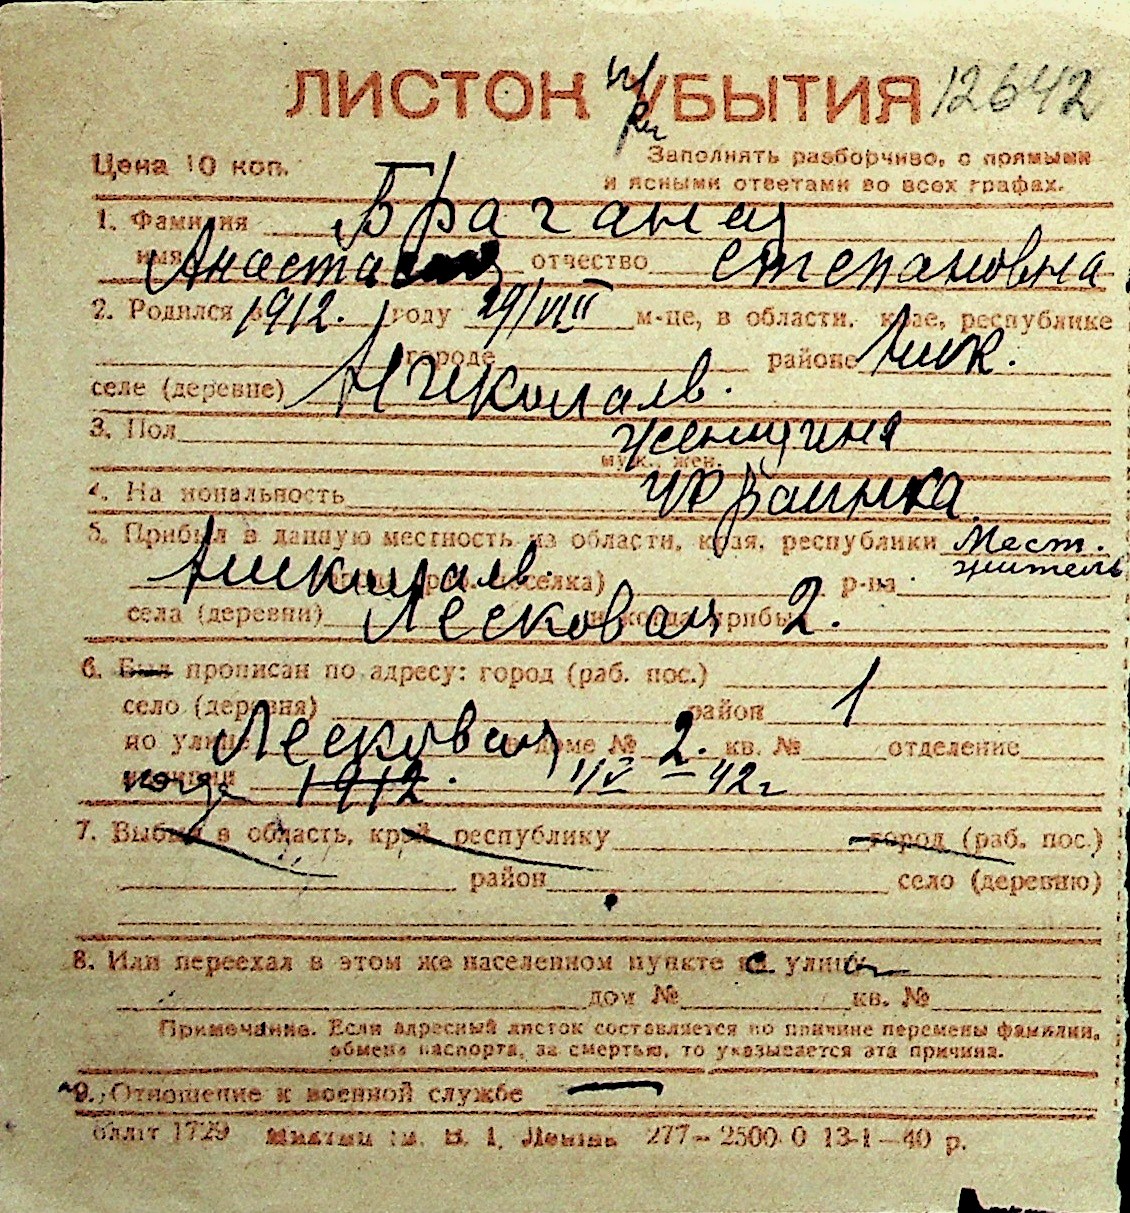 ЛИСТОК УБЫТИЯ 12642
Цена 10 коп.
Заполнять разборчиво, с прямыми
и ясными ответами во всех графах.
1. Фамилия Браганец
имя Анастасия отчество Степановна
2. Родился в 1912. году 29/VIII м-це, в области, крае, республике
городе районе Ник.
селе (деревне) Николаев.
3. Пол женщина
муж., жен.
4. Национальность украинка
5. Прибыл в данную местность из области, края, республики Мест.
житель
Николаев. р-на
села (деревни) Лесковая 2.
6. Был прописан по адресу: город (раб. пос.)
село (деревня) район 1
по улице Лесковая в доме № 2. кв. № отделение
когда 1912. 1/V-42г
7. Выбыл в область, край, республику город (раб. пос.)
район село (деревню)
8. Или переехал в этом же населенном пункте на улицу
дом № кв. №
Примечание. Если адресный листок составляется по причине перемены фамилии,
обмена паспорта, за смертью, то указывается эта причина.
9. Отношение к военной службе —
обліт 1729 Миколаїв ім. В. І. Леніна 277-2500.0 13-1-40 р.